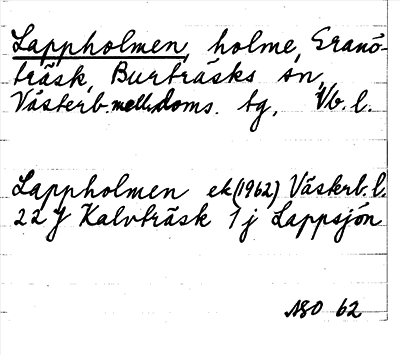 Lappholmen, holme, Granö-
träsk, Burträsks sn,
Västerb. mell. doms. tg, Vb. l.
Lappholmen ek (1962) Västerb. l.
22 J Kalvträsk 1 j Lappsjön
NSO 62